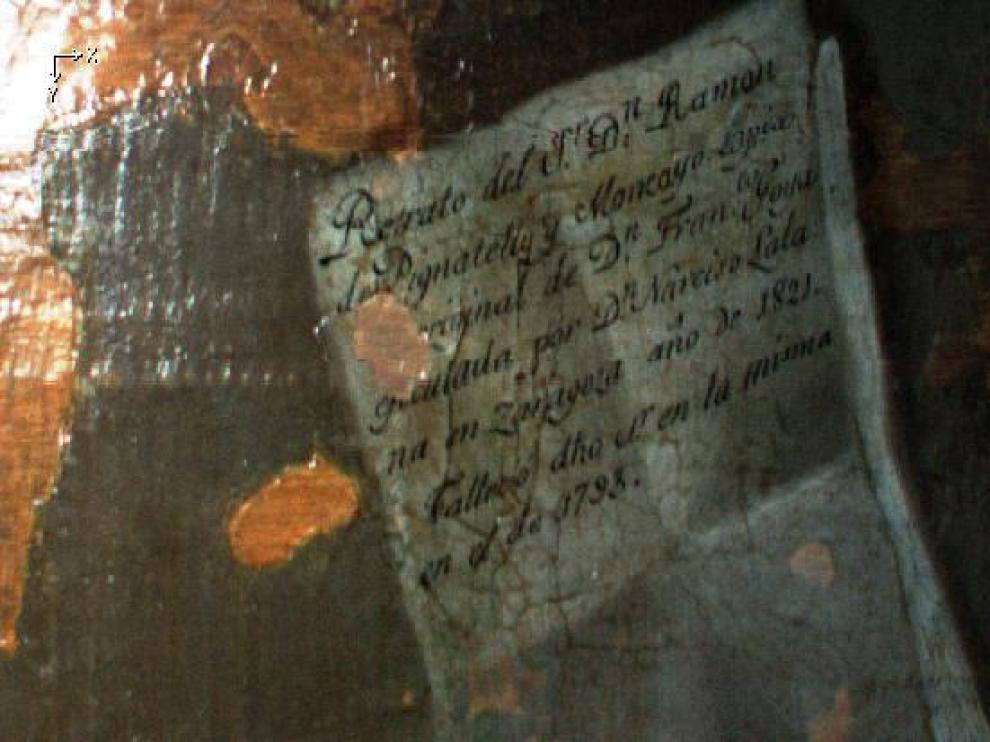 Retrato del S.or D.n Ramon
de Pignateliy y Moncayo. copia
original de D.n Fran.co Goya.
guutada por D.n Narciso Lala
na en Zaragoza año de 1821.
Fallecó dho S.r en la misma
en el de 1793.
X
Y